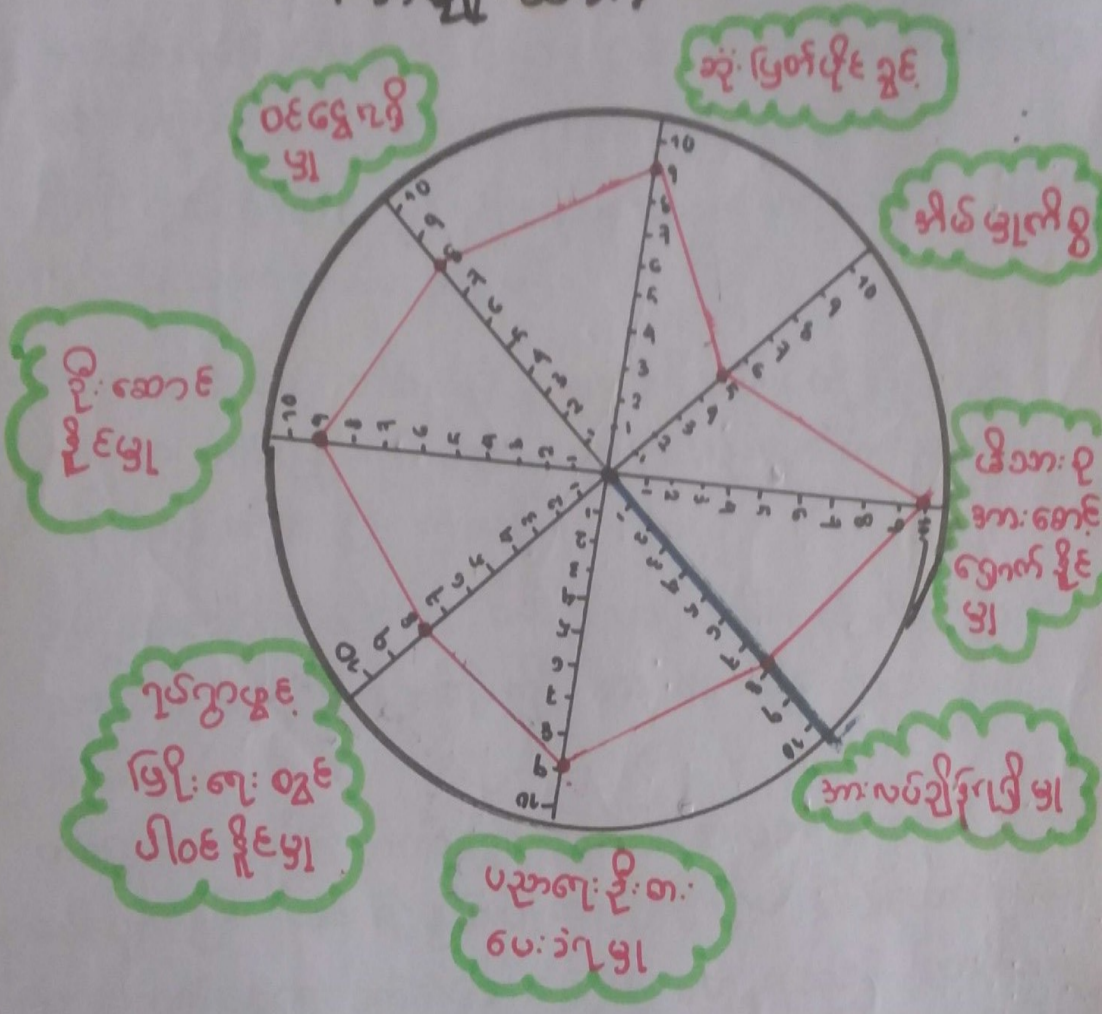 ဆုံးဖြတ်ပိုင်ခွင့်
အိမ်မှုကိစ္စ
မိသားစု
အားစောင့်
ရှောက်နိုင်
မှု
အားလပ်ချိန်ရရှိမှု
ပညာရေးဦးစား
ပေးခံရမှု
ရပ်ရွာဖွံ့
ဖြိုးရေးတွင်
ပါဝင်နိုင်မှု
ဦးဆောင်
နိုင်မှု
ဝင်ငွေရရှိ
မှု
1 2 3 4 5 6 7 8 9 10
1 2 3 4 5 6 7 8 9 10
1 2 3 4 5 6 7 8 9 10
1 2 3 4 5 6 7 8 9 10
1 2 3 4 5 6 7 8 9 10
1 2 3 4 5 6 7 8 9 10
1 2 3 4 5 6 7 8 9 10
1 2 3 4 5 6 7 8 9 10